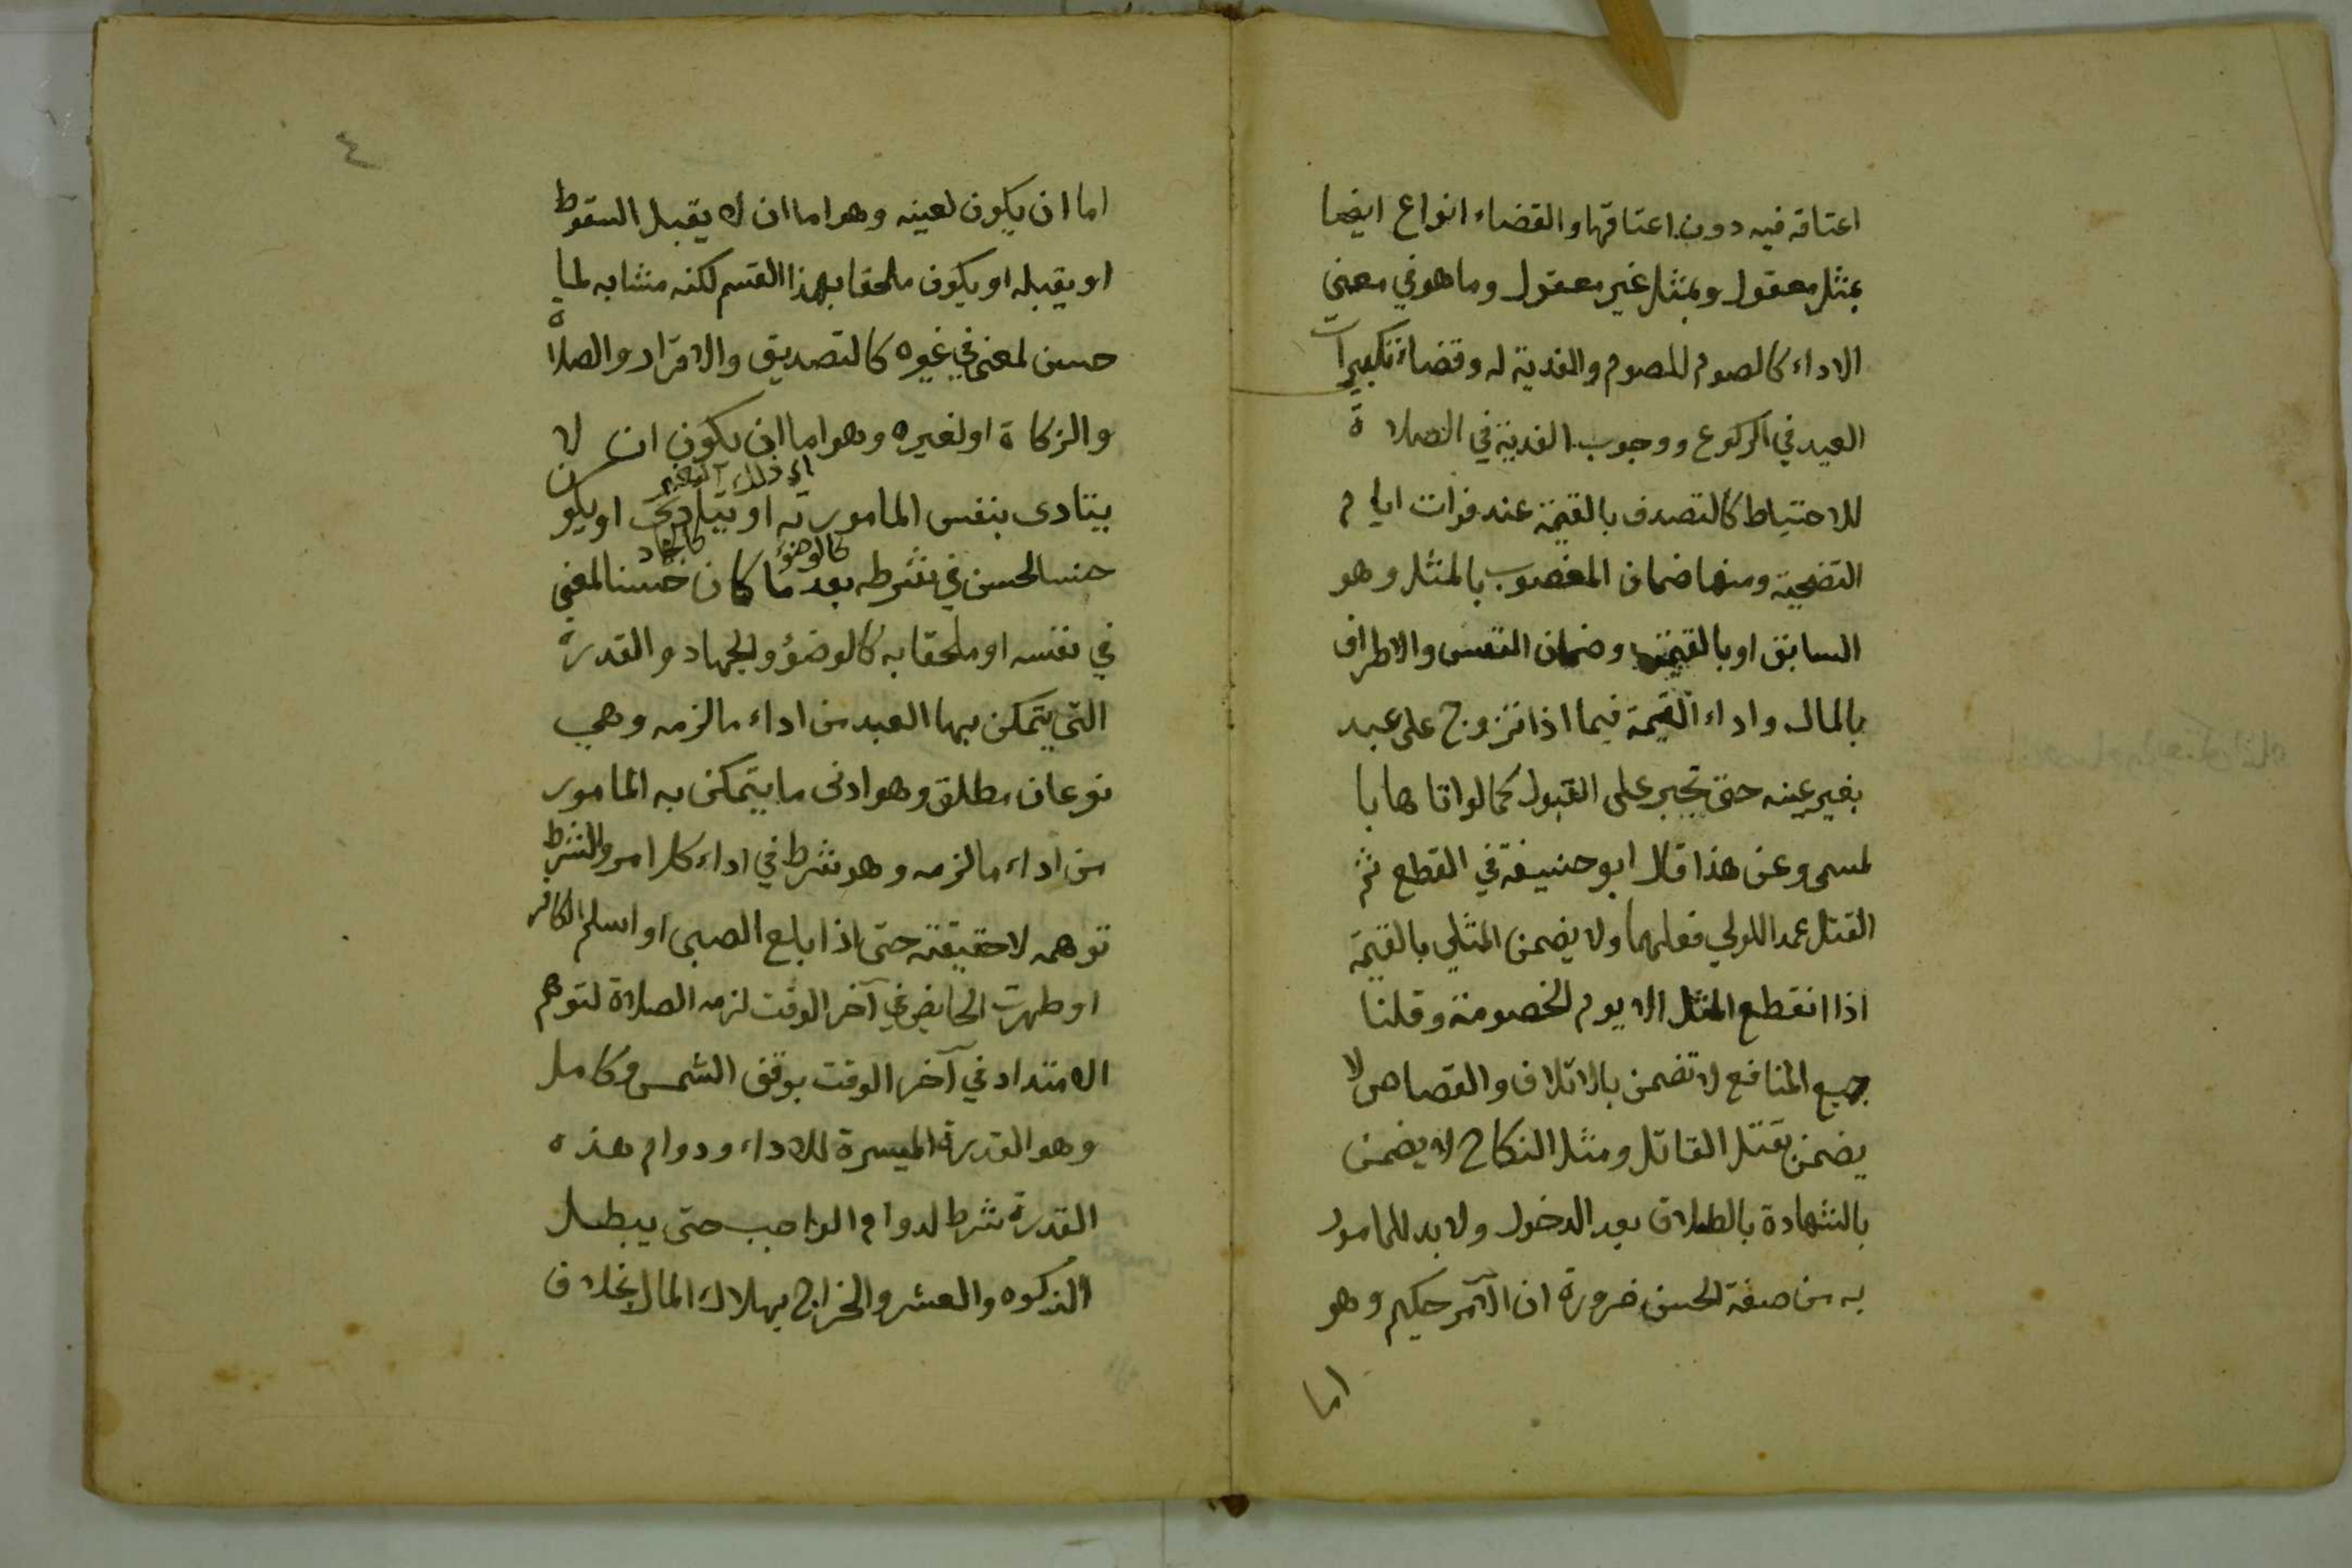 اعتاقه فيه دون اعتاقها والقضاء انواع ايضا
بمثل معقول وبمثل غير معقول وما هو في معني
الاداء كالصوم للصوم والفدية له وقضاء تكبيرات
العيد في الركوع ووجوب الفدية في الصلاة
للاحتياط كالتصدق بالقيمة عند فوات ايام
التضحية ومنها ضمان المغصوب بالمثل وهو
السابق او بالقيمة وضمان النفس والاطراف
بالمال واداء القيمة فيما اذا تزوج على عبد
بغير عينه حتى تجبر على القبول كما لو اتاها با
لمسمى وعن هذا قال ابو حنيفة في القطع ثم
القتل عمدا للولي فعلهما ولا يضمن المثلي بالقيمة
اذا انقطع المثل الا يوم الخصومة وقلنا
جميع المنافع لا تضمن بالاتلاف والقصاص لا
يضمن بقتل القاتل ومثل النكاح لا يضمن
بالشهادة بالطلاق بعد الدخول ولا بد للمامور
به من صفة الحسن ضرورة ان الآمر حكيم وهو
اما
٤
اما ان يكون لعينه وهو اما ان لا يقبل السقوط
او يقبله او يكون ملحقا بهذا القسم لكنه مشابه لما
حسن لمعنى في غيره كالتصديق والاقرار والصلاة
والزكاة او لغيره وهو اما ان يكون ان لا
اي ذلك الغير
يتادى بنفس المامور به او يتادى او يكون
كالوضوء كالجهاد
حسنا لحسن في شرطه بعد ما كان حسنا لمعنى
في نفسه او ملحقا به كالوضؤ والجهاد والقدرة
التي يتمكن بها العبد من اداء ما لزمه وهي
نوعان مطلق وهو ادنى ما يتمكن به المامور
من اداء ما لزمه وهو شرط في اداء كل امر والشرط
توهمه لا حقيقته حتى اذا بلغ الصبى او اسلم الكافر
او طهرت الحايض في آخر الوقت لزمه الصلاة لتوهم
الامتداد في آخر الوقت بوقف الشمس وكامل
وهو القدرة الميسرة للاداء ودوام هذه
القدرة شرط لدوام الواجب حتى يبطل
الزكوه والعشر والخراج بهلاك المال بخلاف